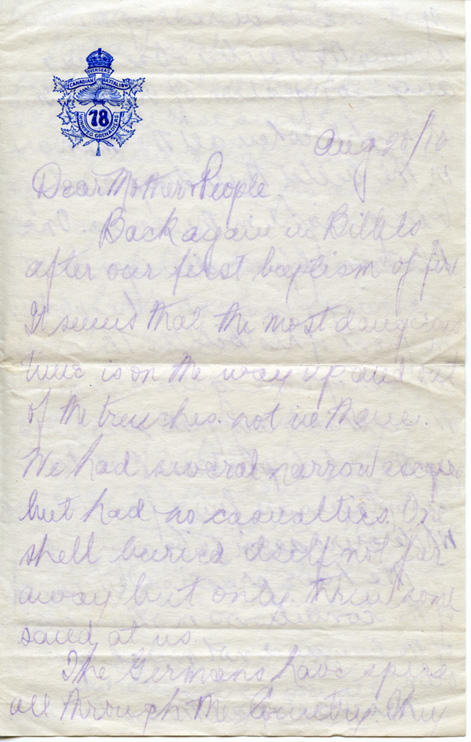 OVERSEAS
CANADIAN BATTALION
78
WINNIPEG GRENADIERS
Aug 20/16
Dear Mother & People.
Back again in Billets
after our first baptism of fire
It seems that the most dangerous
time is on the way up and out
of the trenches. not in them.
We had several narrow escapes
but had no casualties. One
shell buried itself not far
away but only threw some
sand at us.
The Germans have spies
all through the Country they